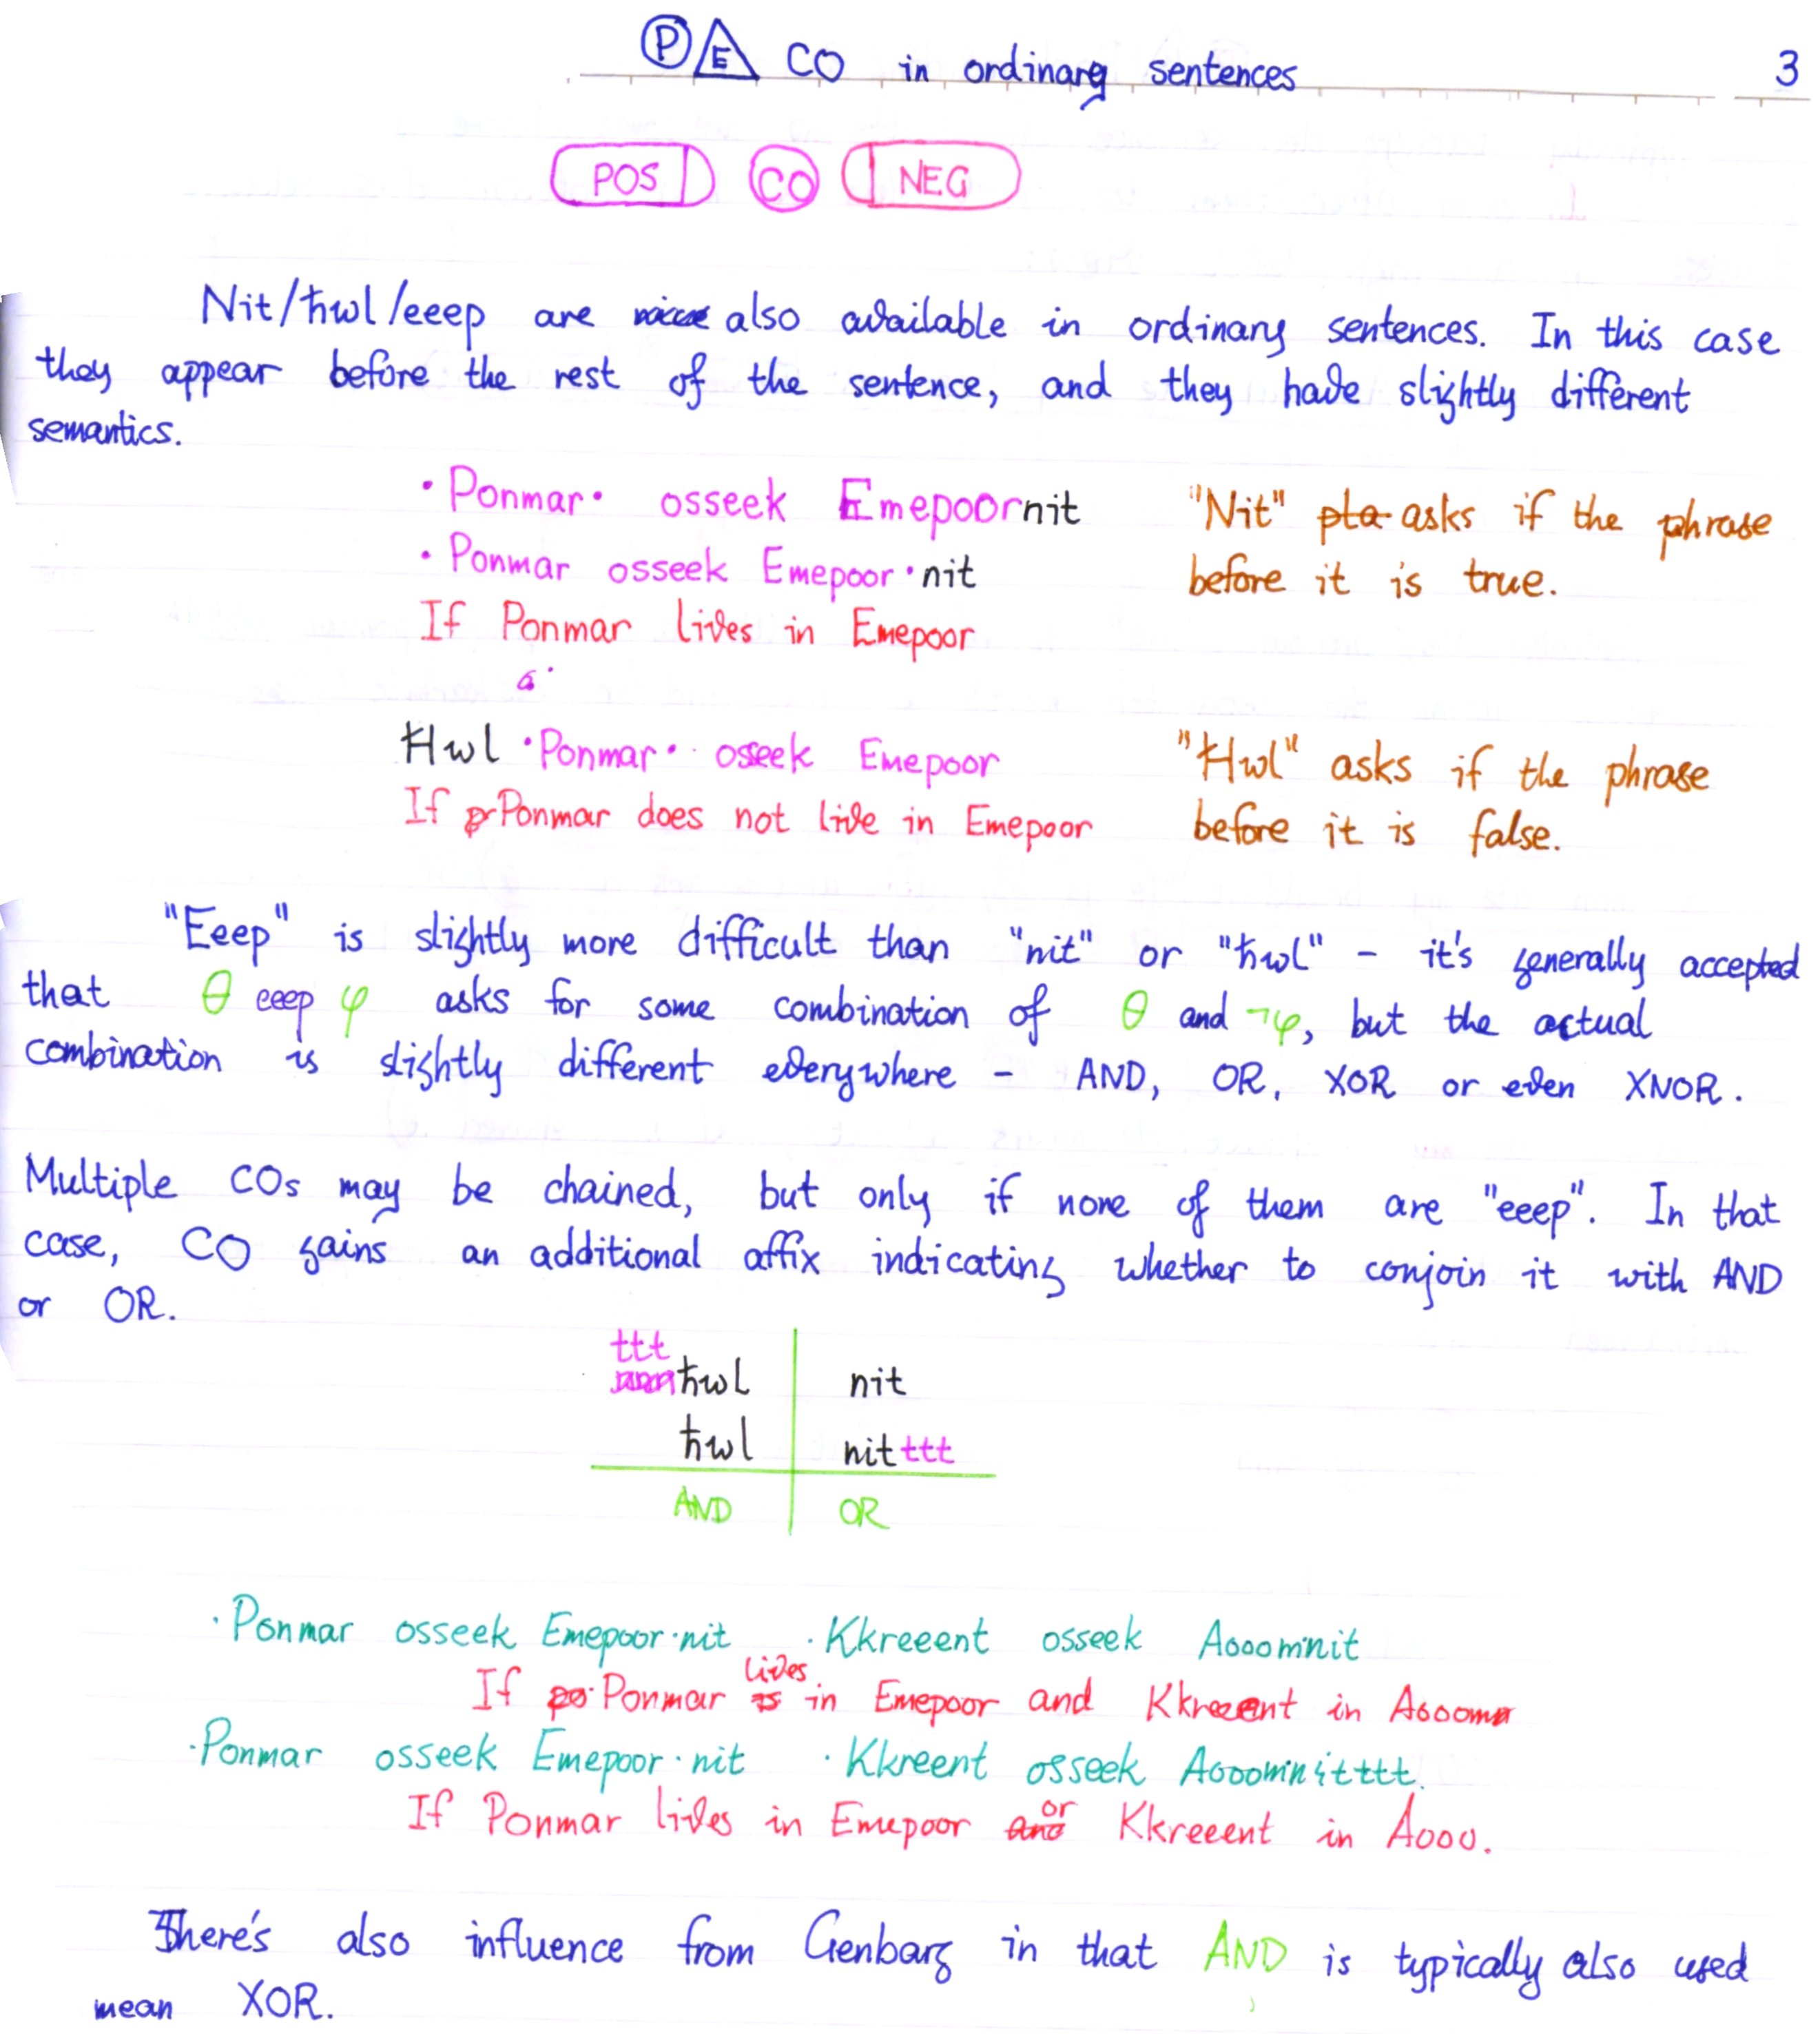 P E CO in ordinary sentences 3
POS CO NEG
Nit/ħwl/eeep are also available in ordinary sentences. In this case
they appear before the rest of the sentence, and they have slightly different
semantics.
·Ponmar· osseek Emepoornit "Nit" asks if the phrase
·Ponmar osseek Emepoor·nit before it is true.
If Ponmar lives in Emepoor
Ħwl ·Ponmar· osseek Emepoor "Ħwl" asks if the phrase
If Ponmar does not live in Emepoor before it is false.
"Eeep" is slightly more difficult than "nit" or "ħwl" - it's generally accepted
that θ eeep φ asks for some combination of θ and ¬φ, but the actual
combination is slightly different everywhere - AND, OR, XOR or even XNOR.
Multiple COs may be chained, but only if none of them are "eeep". In that
case, CO gains an additional affix indicating whether to conjoin it with AND
or OR.
ttt
ħwl nit
ħwl nitttt
AND OR
·Ponmar osseek Emepoor·nit ·Kkreeent osseek Aooomnit
If Ponmar lives in Emepoor and Kkreeent in Aooom
·Ponmar osseek Emepoor·nit ·Kkreent osseek Aooomnitttt.
If Ponmar lives in Emepoor or Kkreeent in Aooo.
There's also influence from Genbarg in that AND is typically also used
mean XOR.